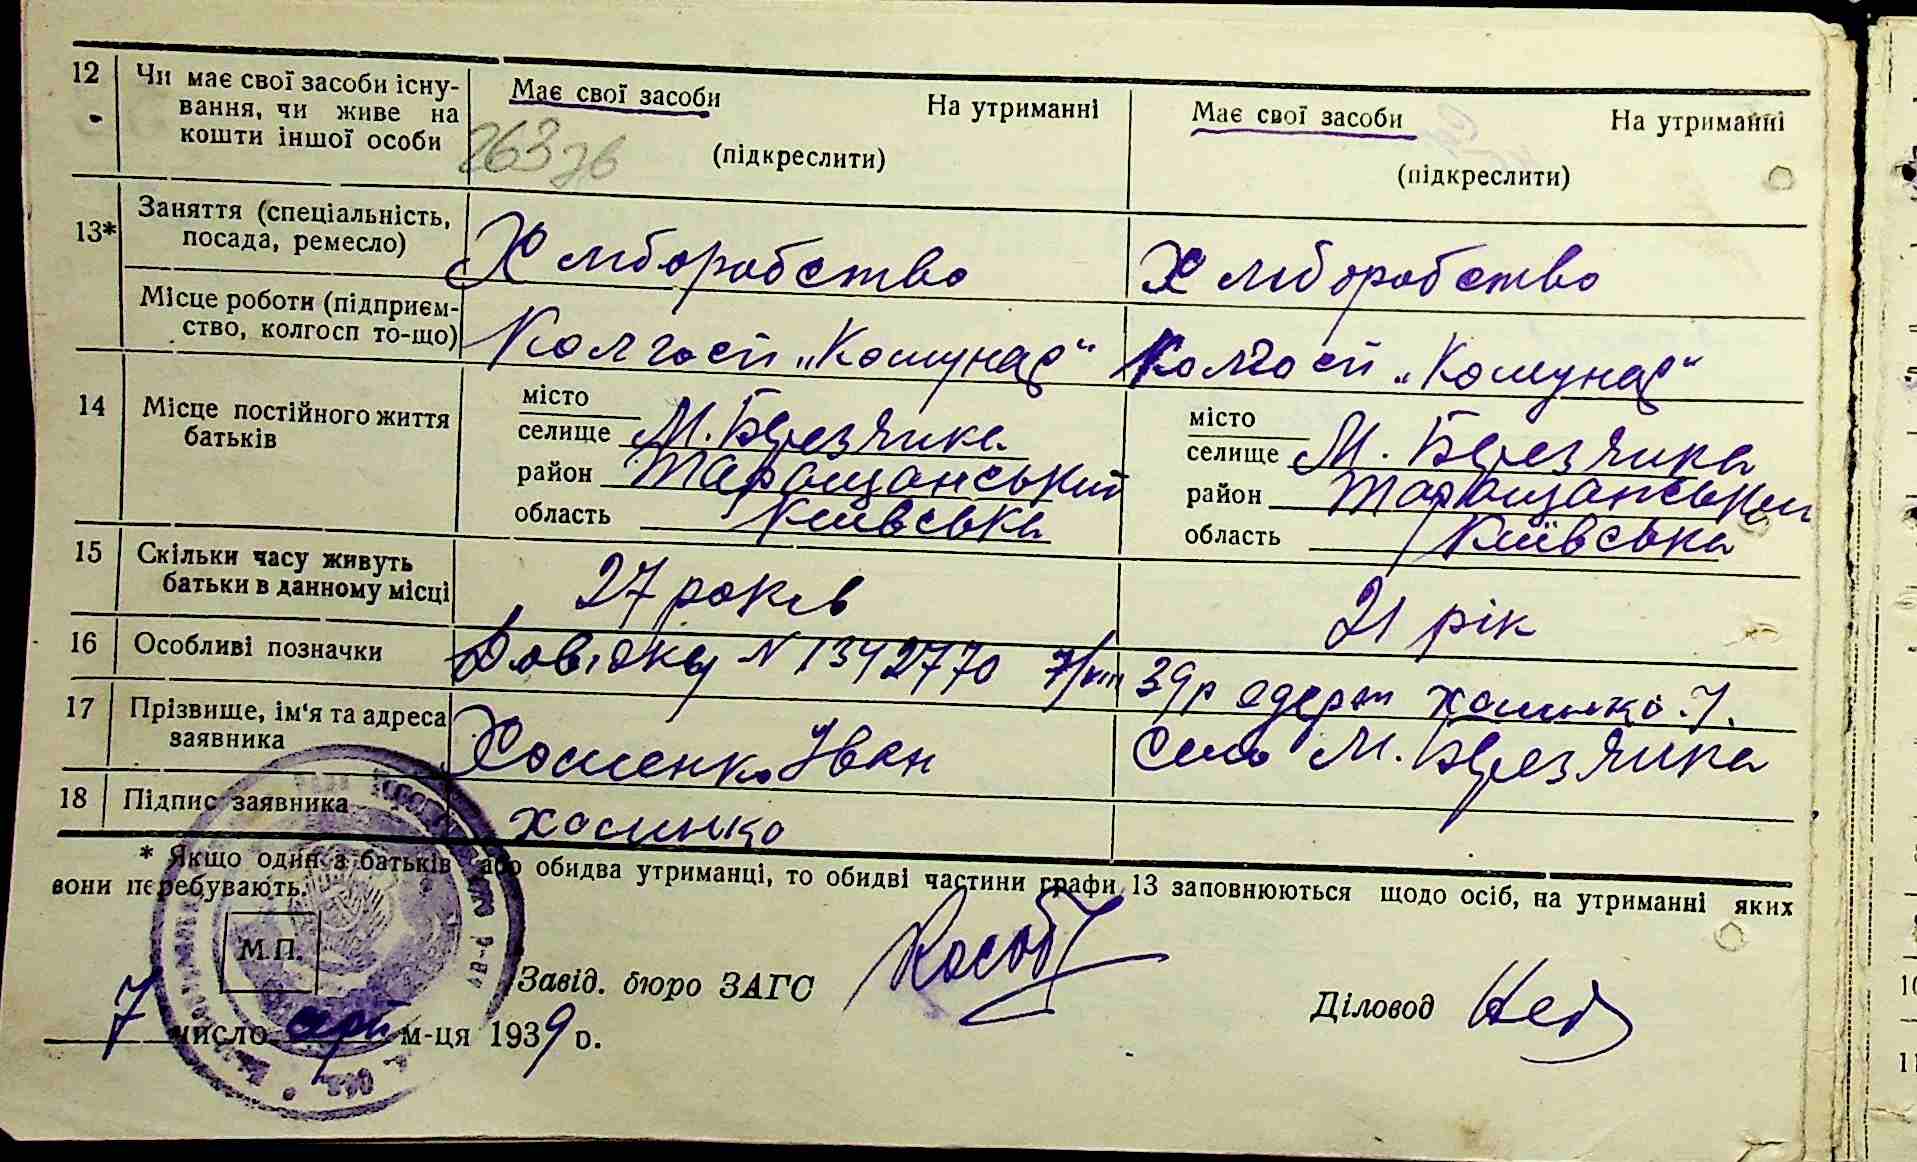 12 Чи має свої засоби існу- Має свої засоби На утриманні Має свої засоби На утриманні
вання, чи живе на
кошти іншої особи 263 зв (підкреслити) (підкреслити)
13* Заняття (спеціальність, Хліборобство Хліборобство
посада, ремесло)
Місце роботи (підприєм- Колгосп „Комунар“ Колгосп „Комунар“
ство, колгосп то-що)
14 Місце постійного життя місто місто
батьків селище М. Березянка селище М. Березянка
район Таращанський район Таращанський
область Київська область Київська
15 Скільки часу живуть 27 років 21 рік
батьки в данному місці
16 Особливі позначки Довідку N 1342770 7/VIII 39р одерж Хоменко І.
17 Прізвище, ім'я та адреса Хоменко Іван Село М. Березянка
заявника
18 Підпис заявника Хоменко
* Якщо один з батьків або обидва утриманці, то обидві частини графи 13 заповнюються щодо осіб, на утриманні яких
вони перебувають.
М.П.
Завід. бюро ЗАГС Діловод
7 число серп м-ця 1939 р.